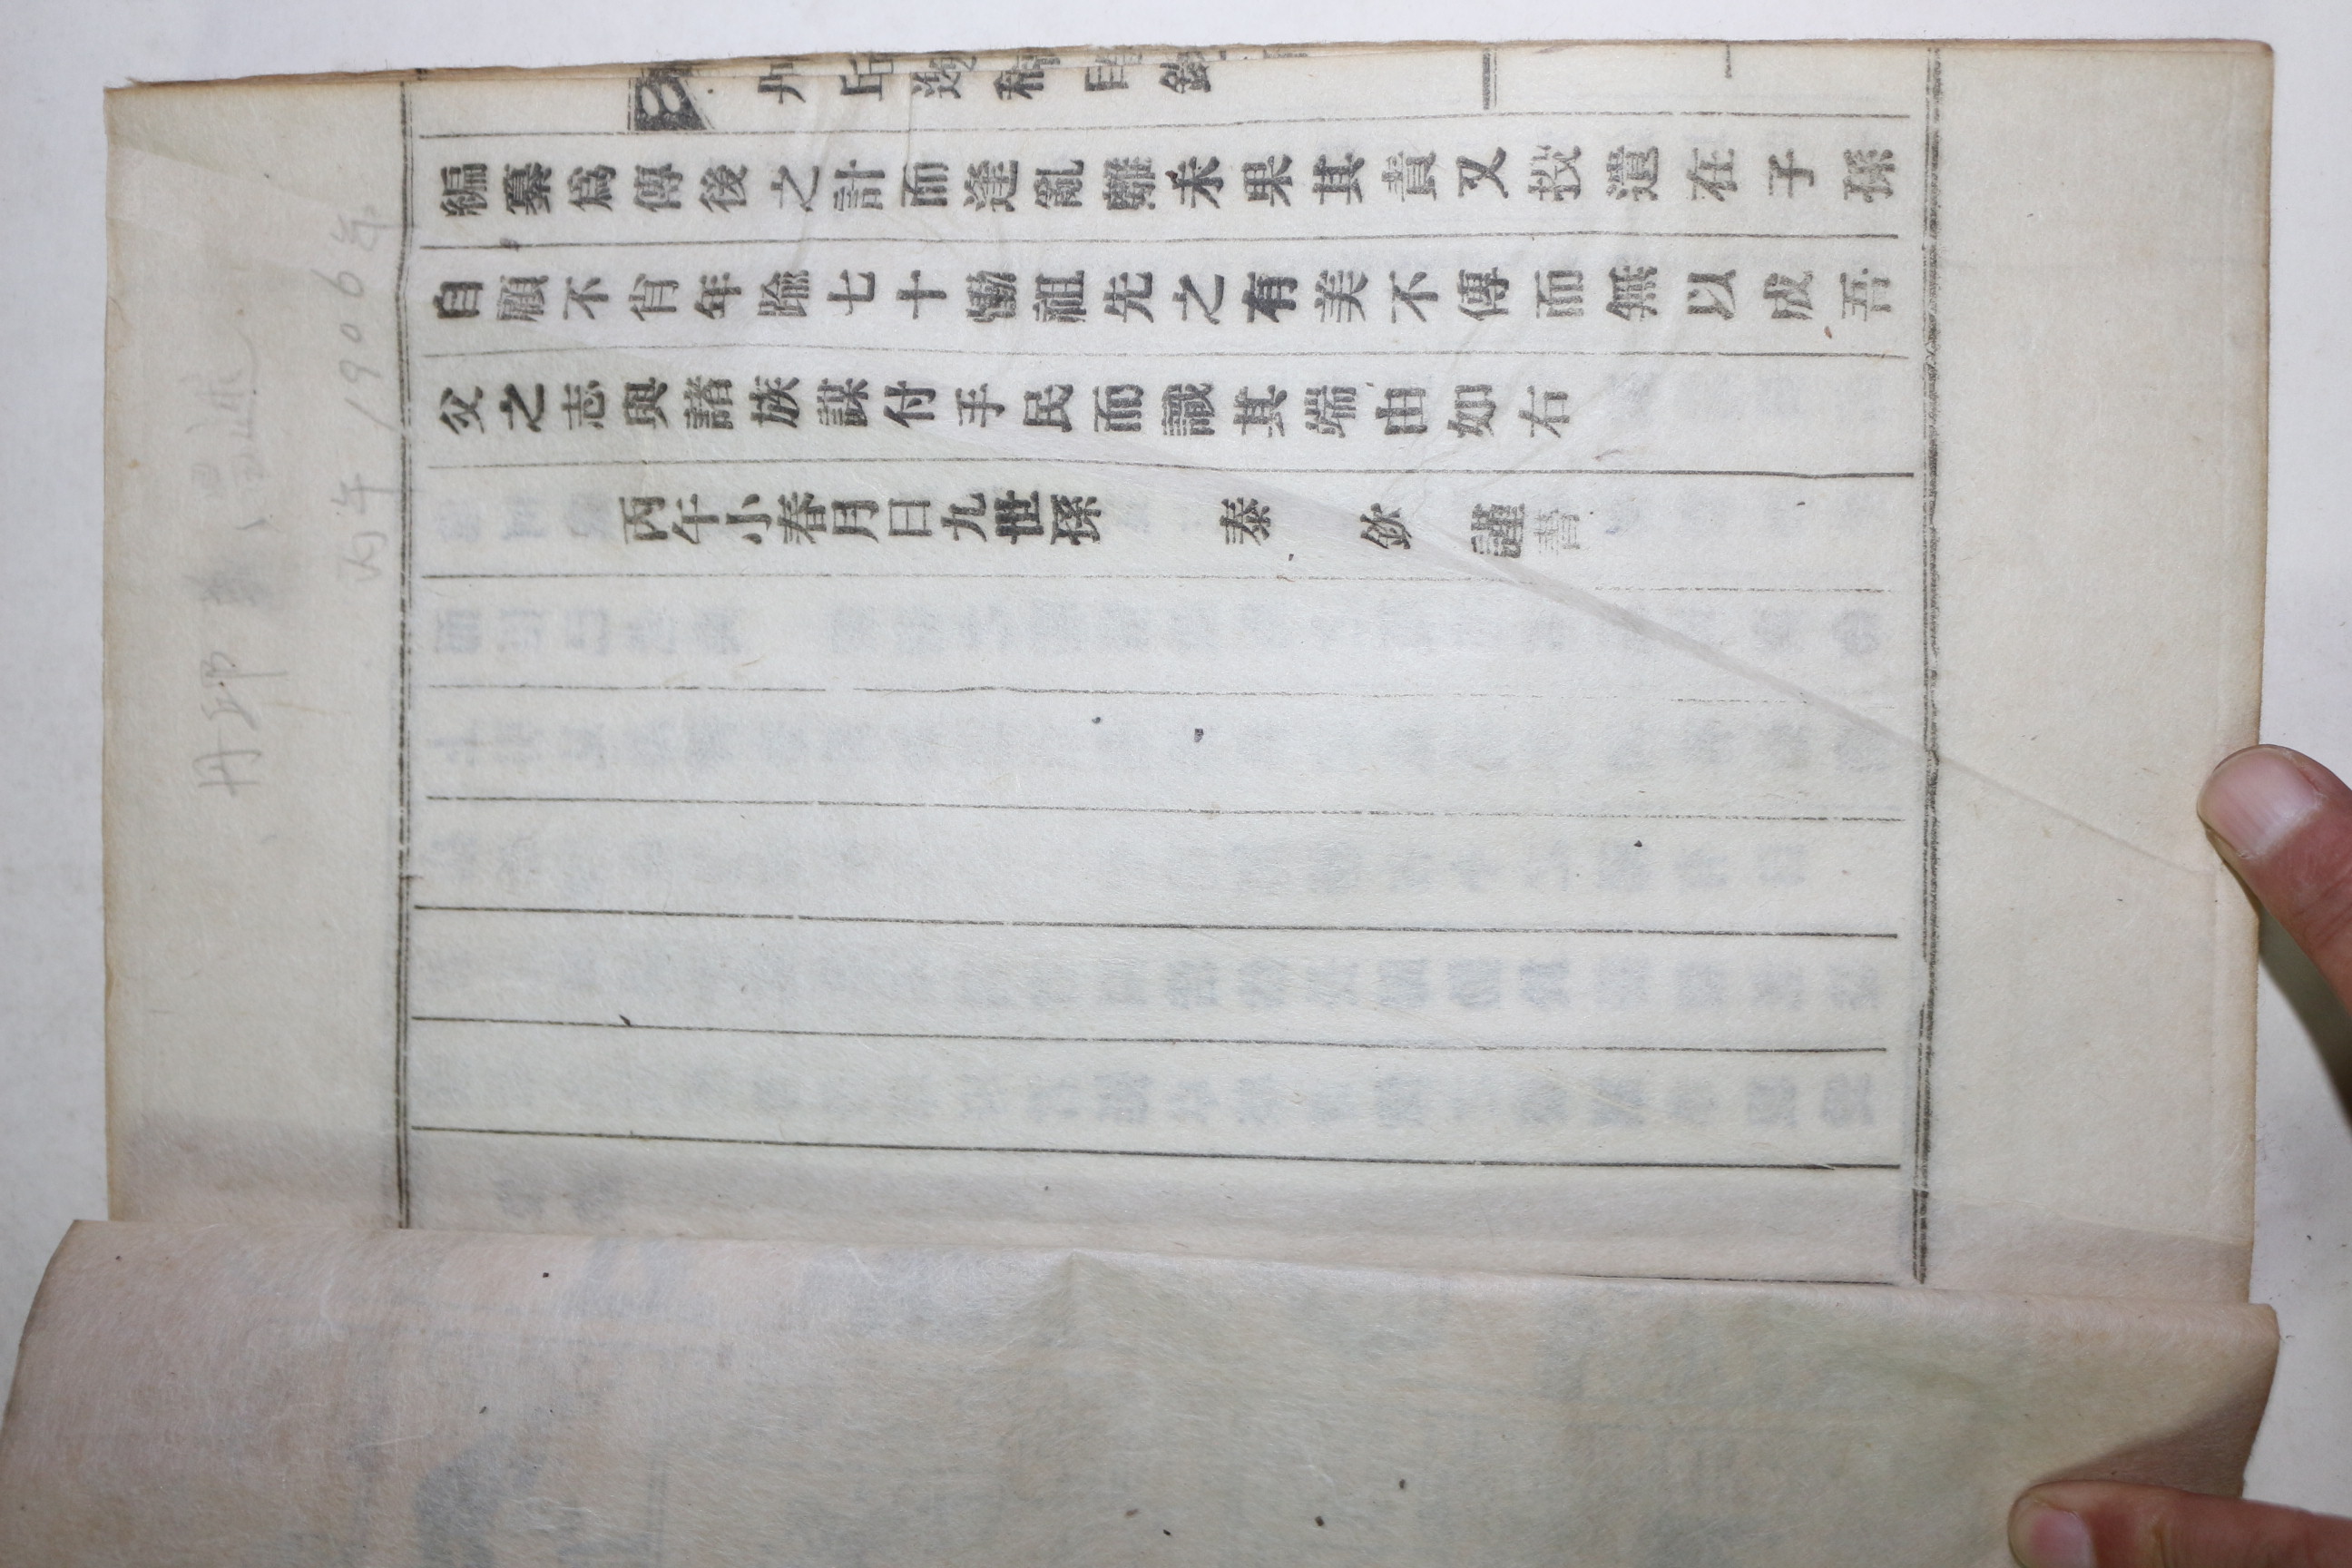 丹丘遺稿目錄
編纂爲傳後之計而逢亂離未果其責又投遺在子孫
自顧不肖年踰七十慟祖先之有美不傳而無以成吾
父之志與諸族謀付手民而識其端由如右
丙午小春月日九世孫 泰 欽 謹書
丙午 1906年
丹邱